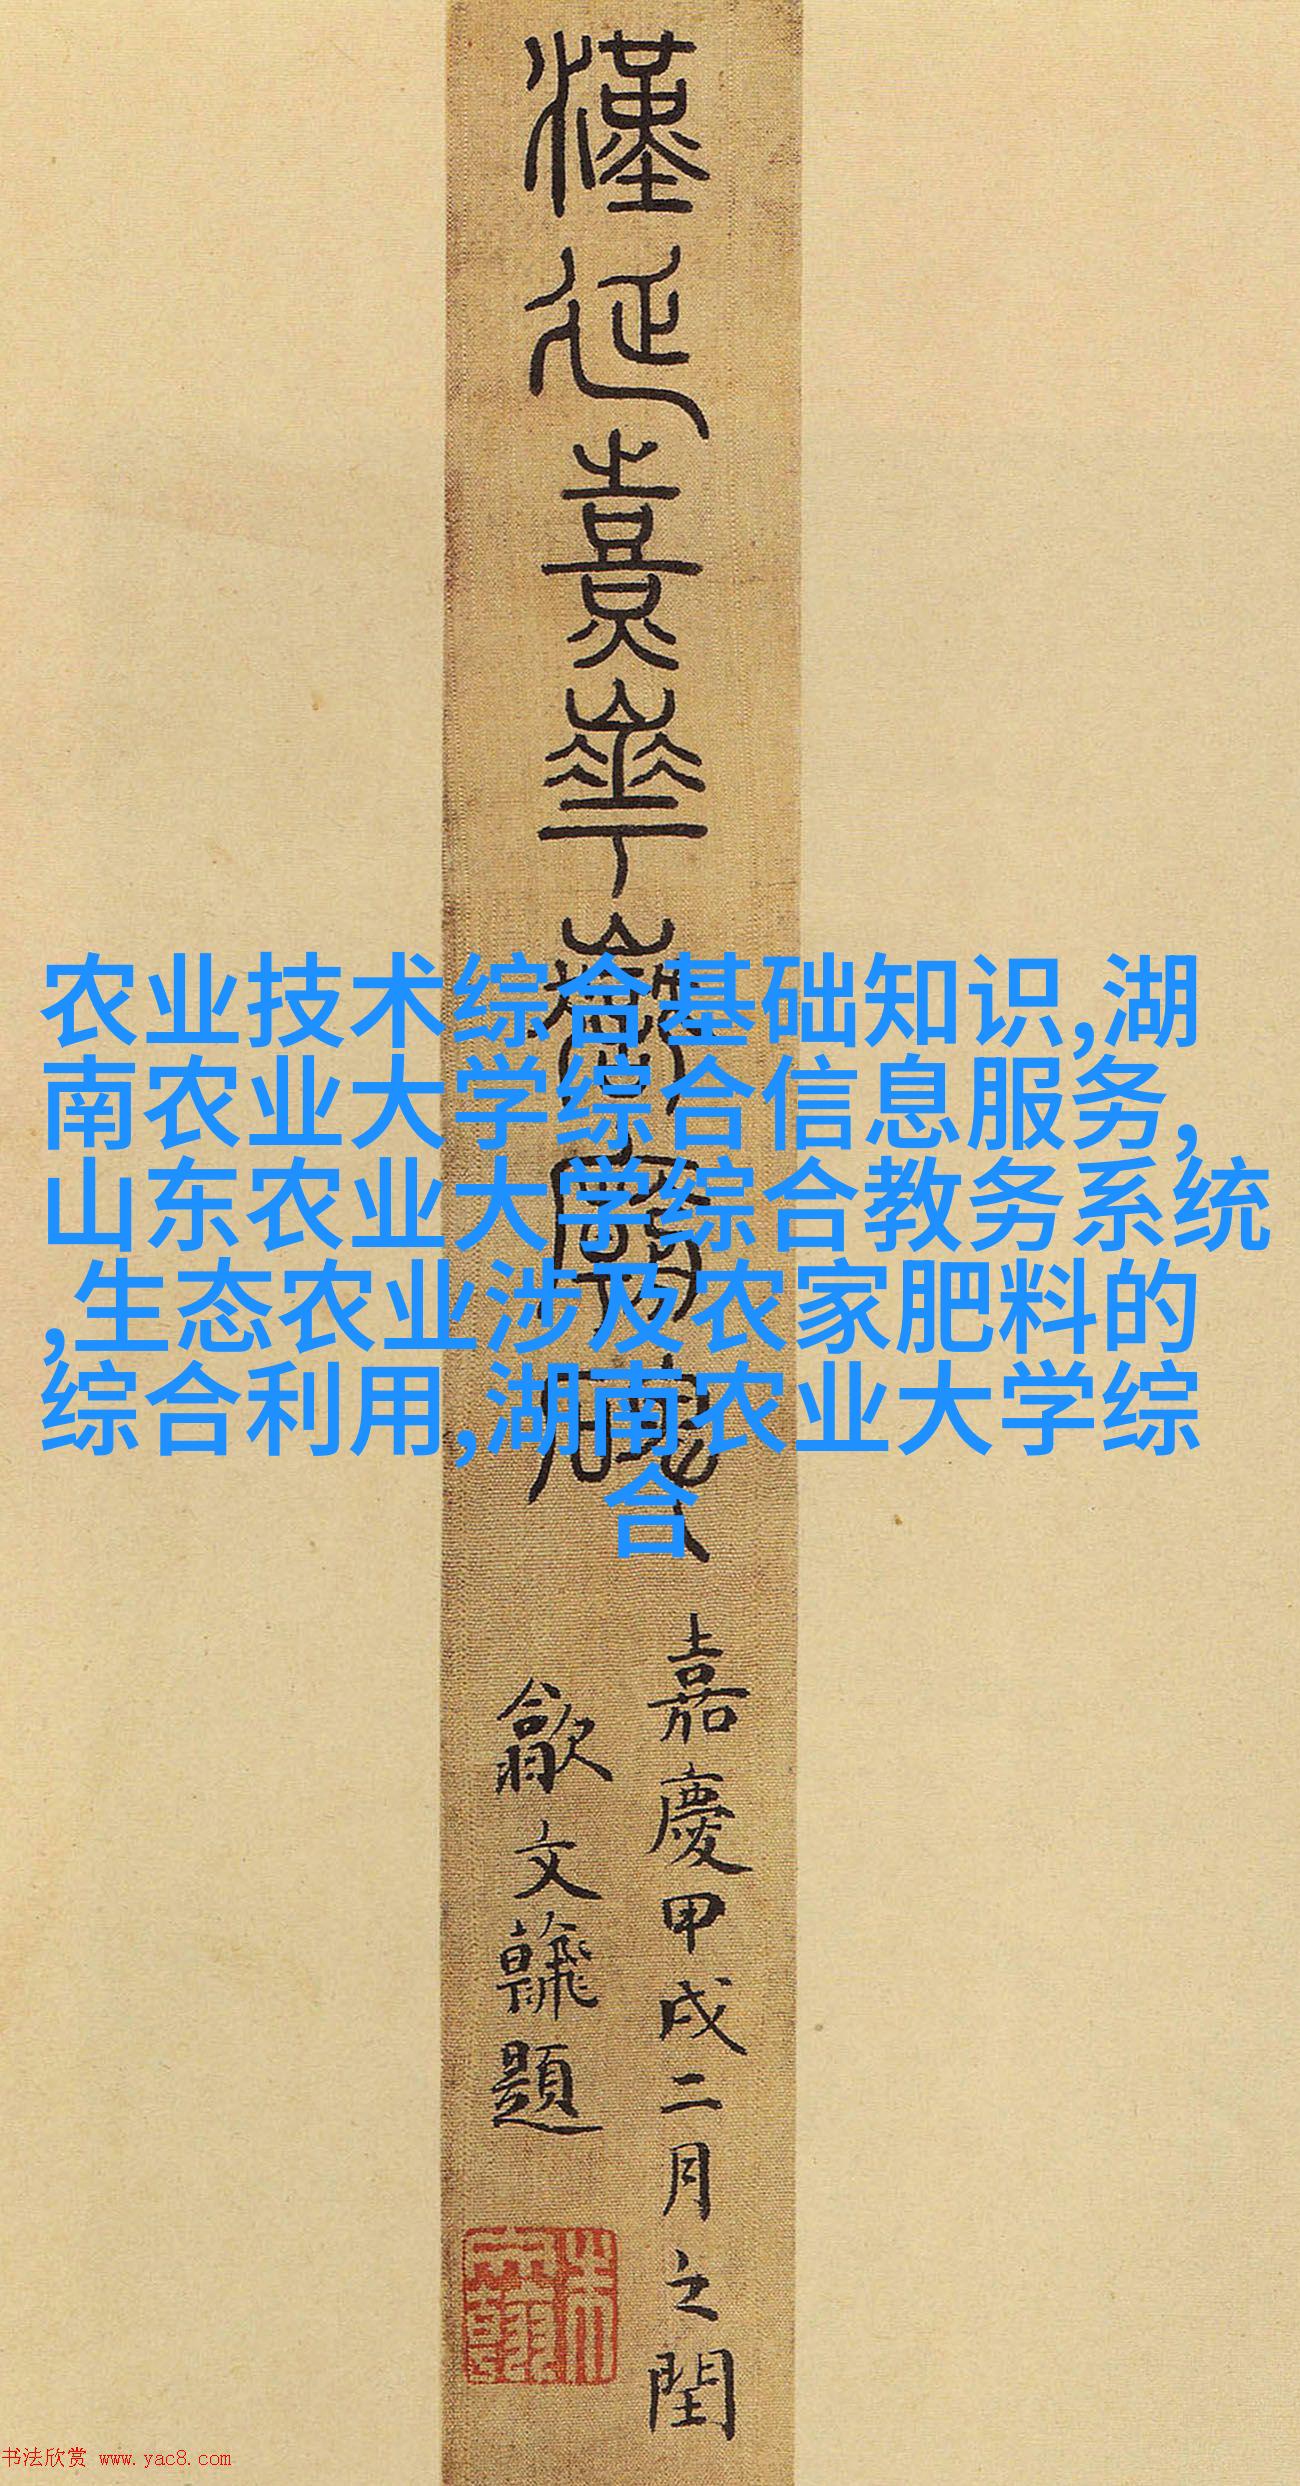 漢延熹華嶽
农业技术综合基础知识,湖
南农业大学综合信息服务,
山东农业大学综合教务系统
,生态农业涉及农家肥料的
综合利用,湖南农业大学综
合
嘉慶甲戌二月之閏
歙文題
书法欣赏 www.yac8.com